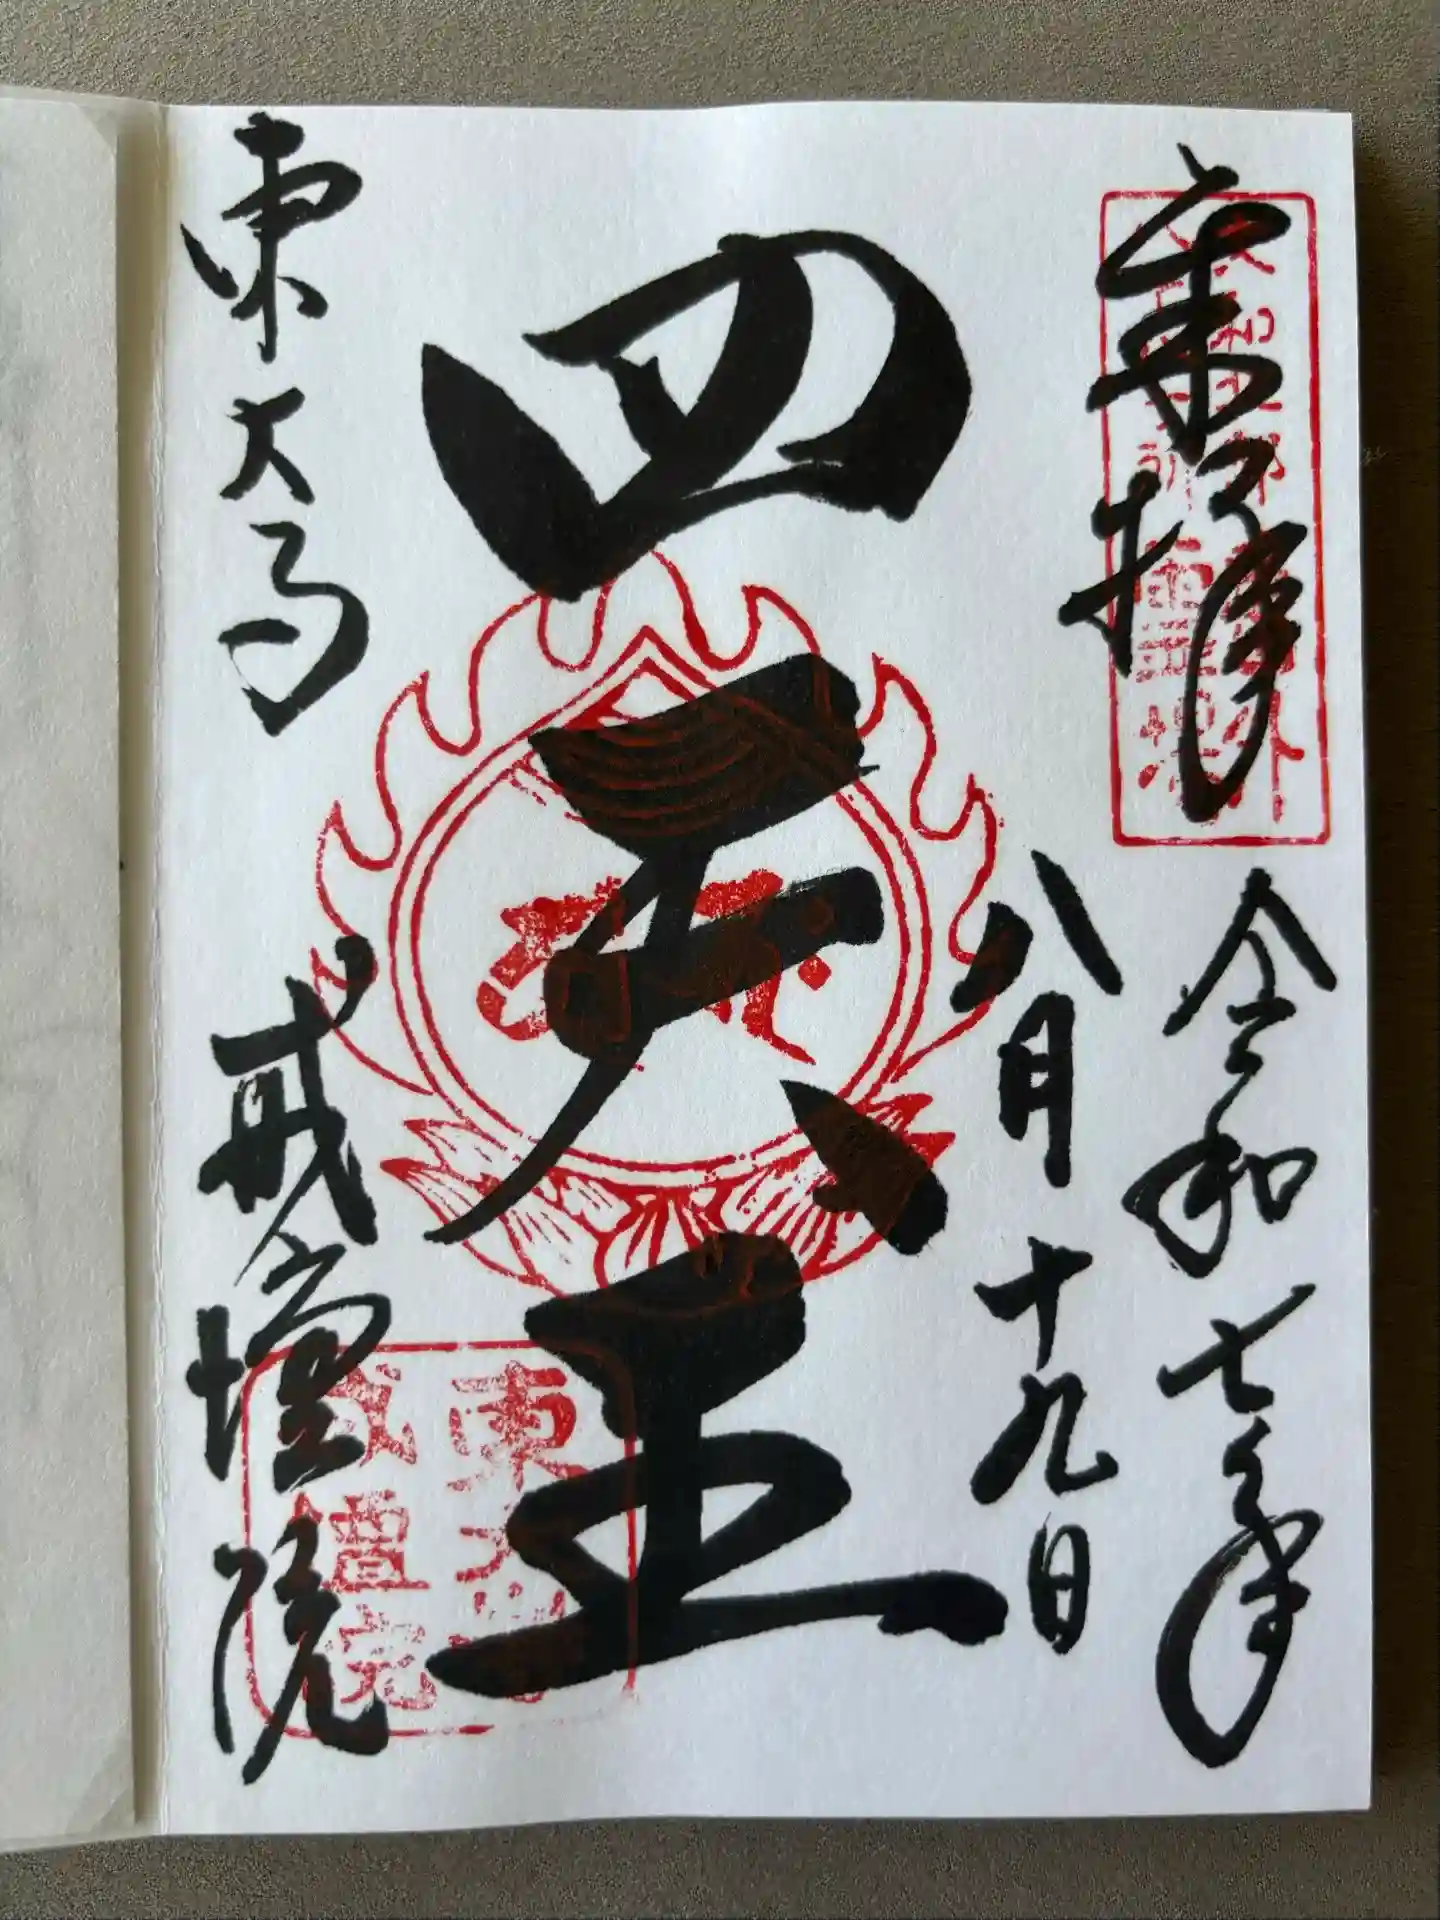 奉拝
令和七年
八月十九日
四天王
東大寺
戒壇院
東大寺
戒壇院